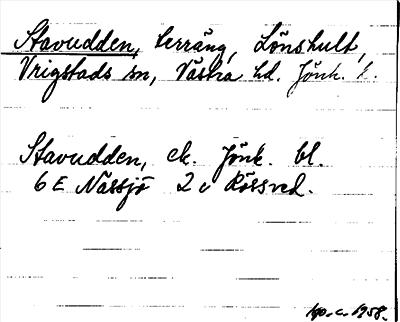 Stavudden, terräng, Lönshult,
Vrigstads sn, Västra hd. Jönk. l.
Stavudden, ek. Jönk. bl.
6 E Nässjö 2 c Rössved.
1958.